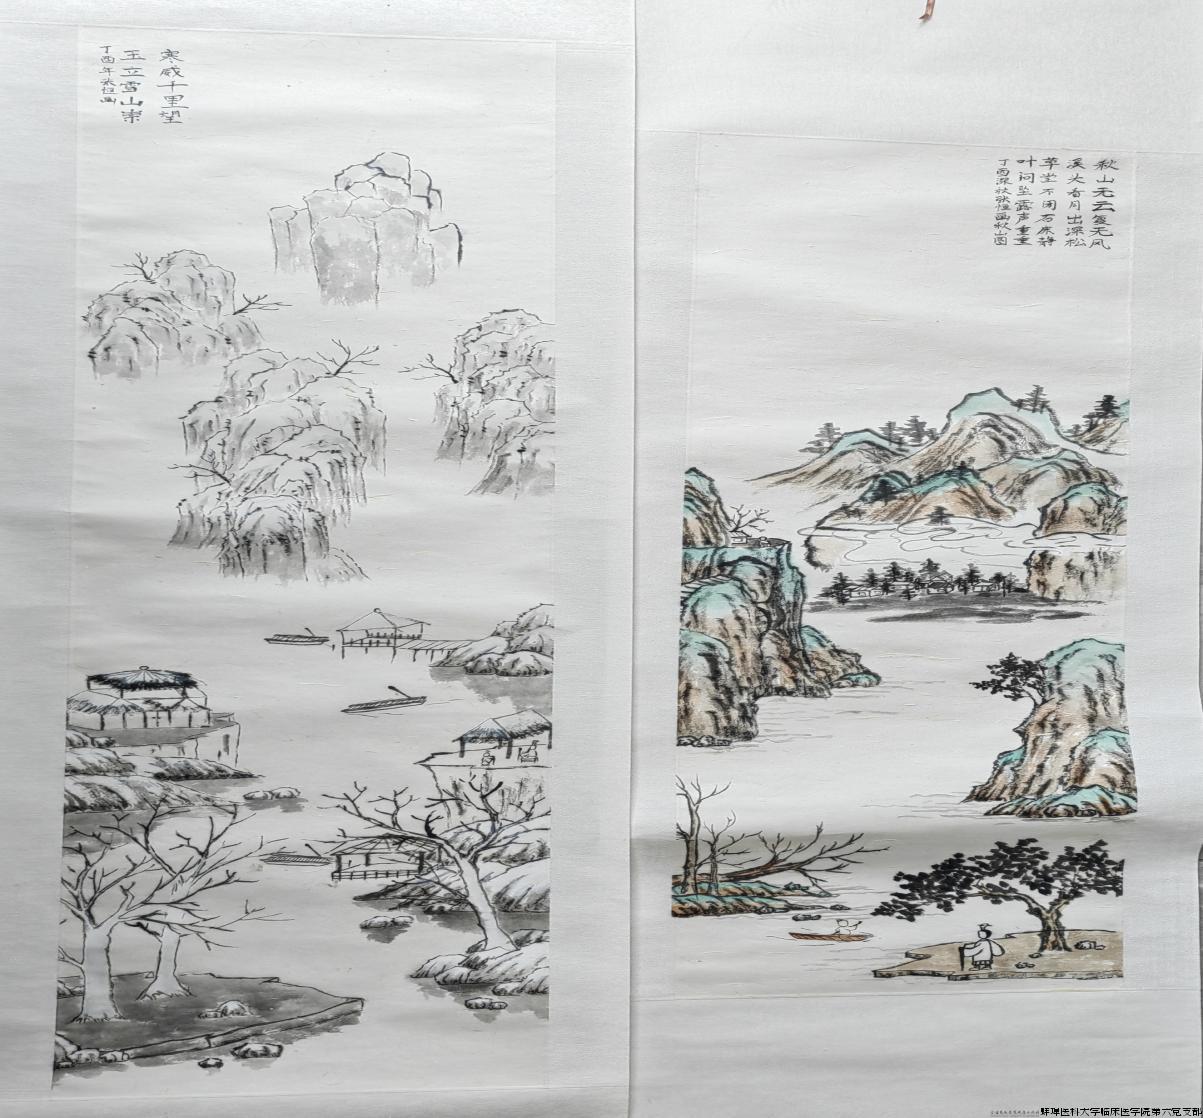 寒威千里望
玉立雪山崇
丁酉年张恒画
秋山无云复无风
溪头看月出深松
草堂不闭石床静
叶间坠露声重重
丁酉深秋张恒画秋山图
蚌埠医科大学临床医学院第六党支部